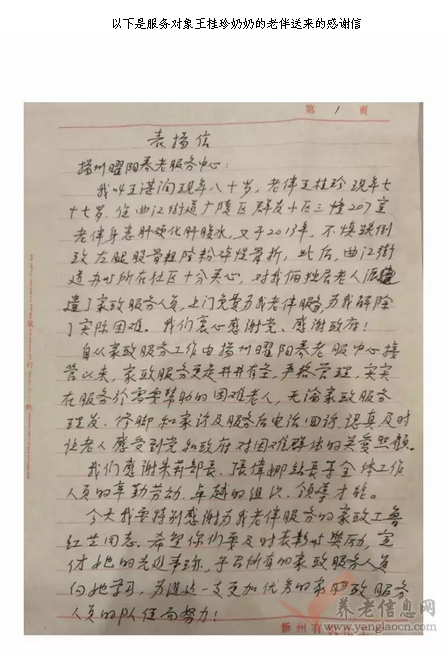 以下是服务对象王桂珍奶奶的老伴送来的感谢信
第 1 页
表扬信
扬州曜阳养老服务中心：
我叫王湛洵现年八十岁，老伴王桂珍现年七
十七岁，住曲江街道广陵区群发小区三幢207室
老伴身患肝硬化肝腹水，又于2013年，不慎跌倒
致左腿股骨粗隆粉碎性骨折，此后，曲江街
道办事所在社区十分关心，对我俩独居老人派遣
遣了家政服务人员，上门免费为我老伴服务，为我解除
了实际困难。我们衷心感谢党、感谢政府！
自从家政服务工作由扬州曜阳养老服中心接
管以来，家政服务更走井井有条，严格管理，实实
在服务于需要帮助的困难老人，无论家政服务
理发、修脚和家访及服务后电话回访，认真及时
让老人感受到党和政府对困难群体的关爱照顾。
我们感谢朱莉部长、张伟娜站长等全体工作
人员的辛勤劳动，卓越的组织、领导才能。
今天我要特别感谢为我老伴服务的家政工鲁
红芝同志。希望你们要及时表彰与奖励，宣
传她的先进事迹，号召所有的家政服务人员
向她学习，为造一支更加优秀的家政服务
人员的队伍而努力！
养老信息网
www.yanglaocn.com